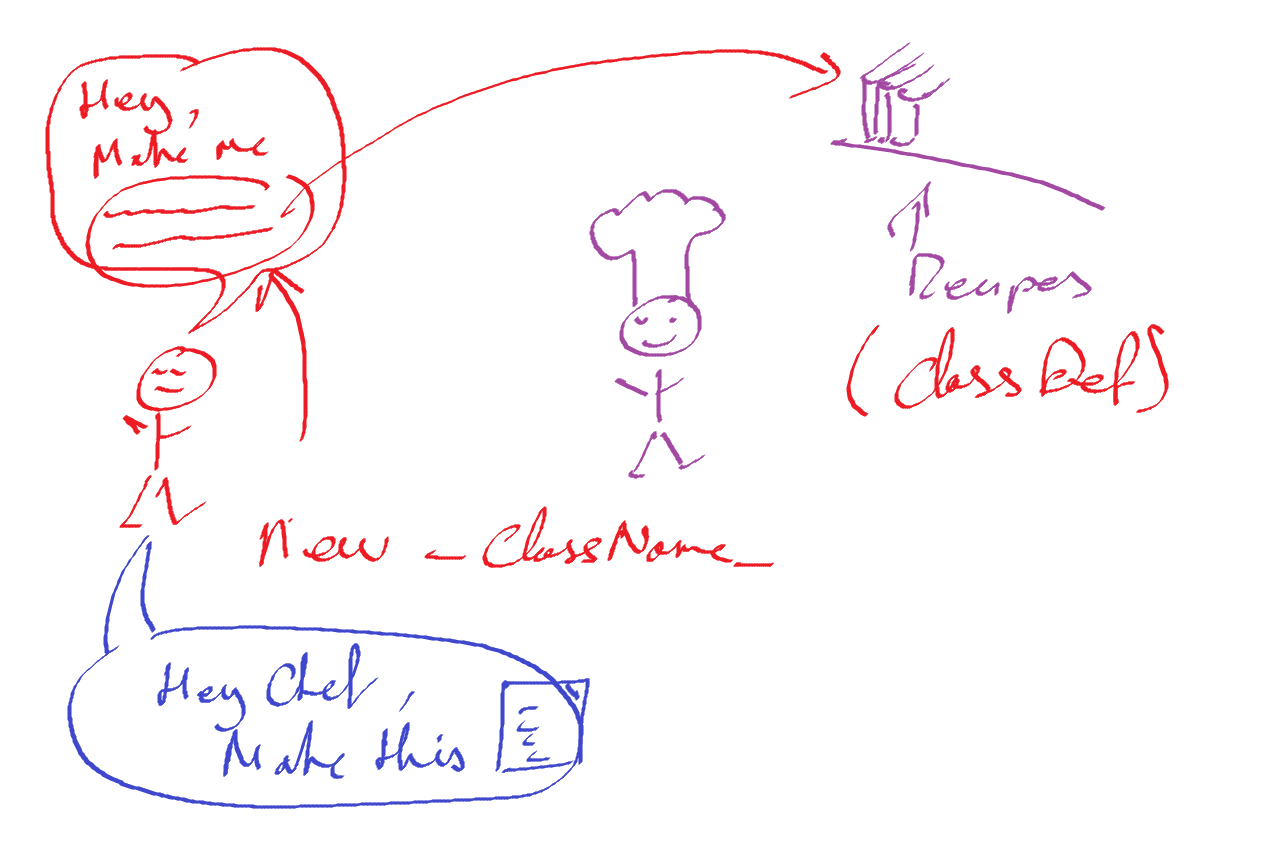 Hey,
Make me
Recipes
(ClassDef)
New _ClassName_
Hey Chef,
Make this